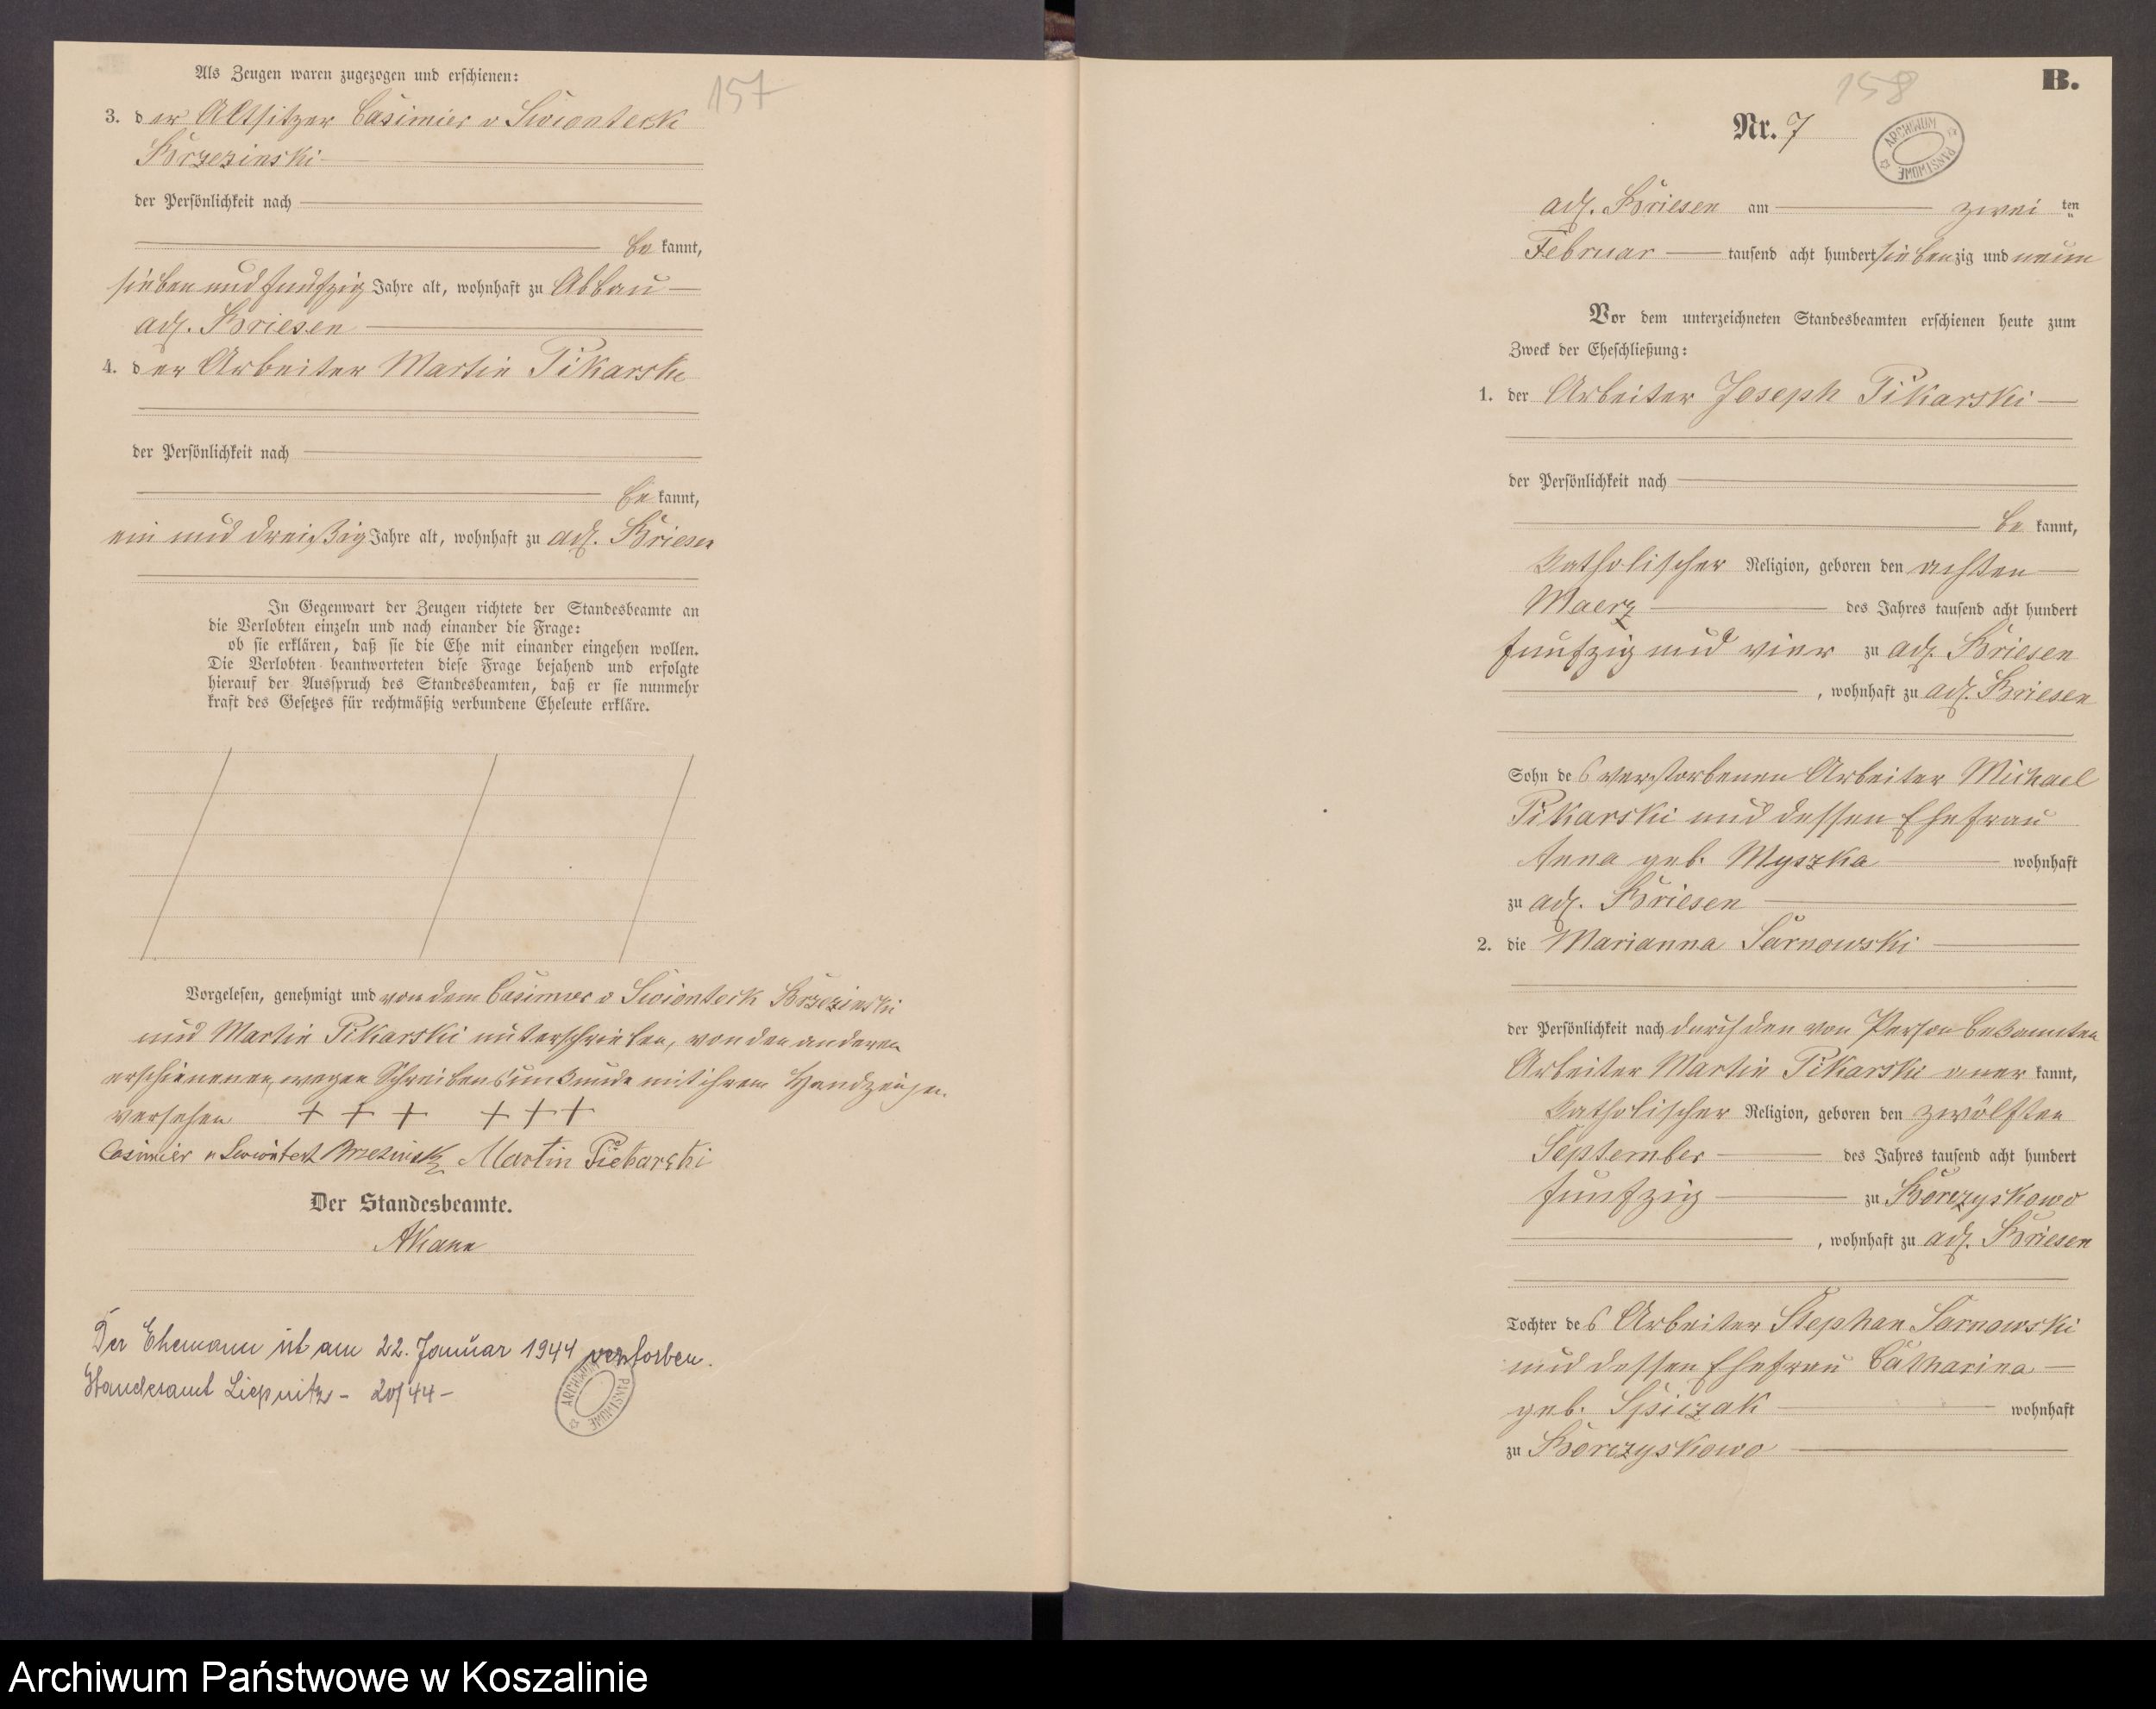 Als Zeugen waren zugezogen und erschienen:
157
3. der Altsitzer Casimier v Swionteck
Brzezinski
der Persönlichkeit nach
be kannt,
sieben und funfzig Jahre alt, wohnhaft zu Abbau
adl. Briesen
4. der Arbeiter Martin Pikarski
der Persönlichkeit nach
be kannt,
ein und dreißig Jahre alt, wohnhaft zu adl. Briesen
In Gegenwart der Zeugen richtete der Standesbeamte an
die Verlobten einzeln und nach einander die Frage:
ob sie erklären, daß sie die Ehe mit einander eingehen wollen.
Die Verlobten beantworteten diese Frage bejahend und erfolgte
hierauf der Ausspruch des Standesbeamten, daß er sie nunmehr
kraft des Gesetzes für rechtmäßig verbundene Eheleute erkläre.
Vorgelesen, genehmigt und von dem Casimier v Swionteck Brzezinski
und Martin Pikarski unterschrieben, von den anderen
erschienenen, wegen Schreibensunkunde mit ihrem Handzeichen
versehen + + + + + +
Casimier v Swionteck Brzezinski Martin Piekarski
Der Standesbeamte.
AKann
Der Ehemann ist am 22. Januar 1944 verstorben.
Standesamt Liepnitz - 20/44 -
ARCHIWUM PAŃSTWOWE
158
B.
Nr. 7
ARCHIWUM PAŃSTWOWE
adl. Briesen am zwei ten
Februar tausend acht hundert siebenzig und neun
Vor dem unterzeichneten Standesbeamten erschienen heute zum
Zweck der Eheschließung:
1. der Arbeiter Joseph Pikarski
der Persönlichkeit nach
be kannt,
katholischer Religion, geboren den achten
Maerz des Jahres tausend acht hundert
funfzig und vier zu adl. Briesen
, wohnhaft zu adl. Briesen
Sohn des verstorbenen Arbeiter Michael
Pikarski und dessen Ehefrau
Anna geb. Myszka wohnhaft
zu adl. Briesen
2. die Marianna Sarnowski
der Persönlichkeit nach durch den von Person bekannten
Arbeiter Martin Pikarski aner kannt,
katholischer Religion, geboren den zwölften
September des Jahres tausend acht hundert
funfzig zu Borczyskowo
, wohnhaft zu adl. Briesen
Tochter des Arbeiter Stephan Sarnowski
und dessen Ehefrau Catharina
geb. Spiczak wohnhaft
zu Borczyskowo
Archiwum Państwowe w Koszalinie